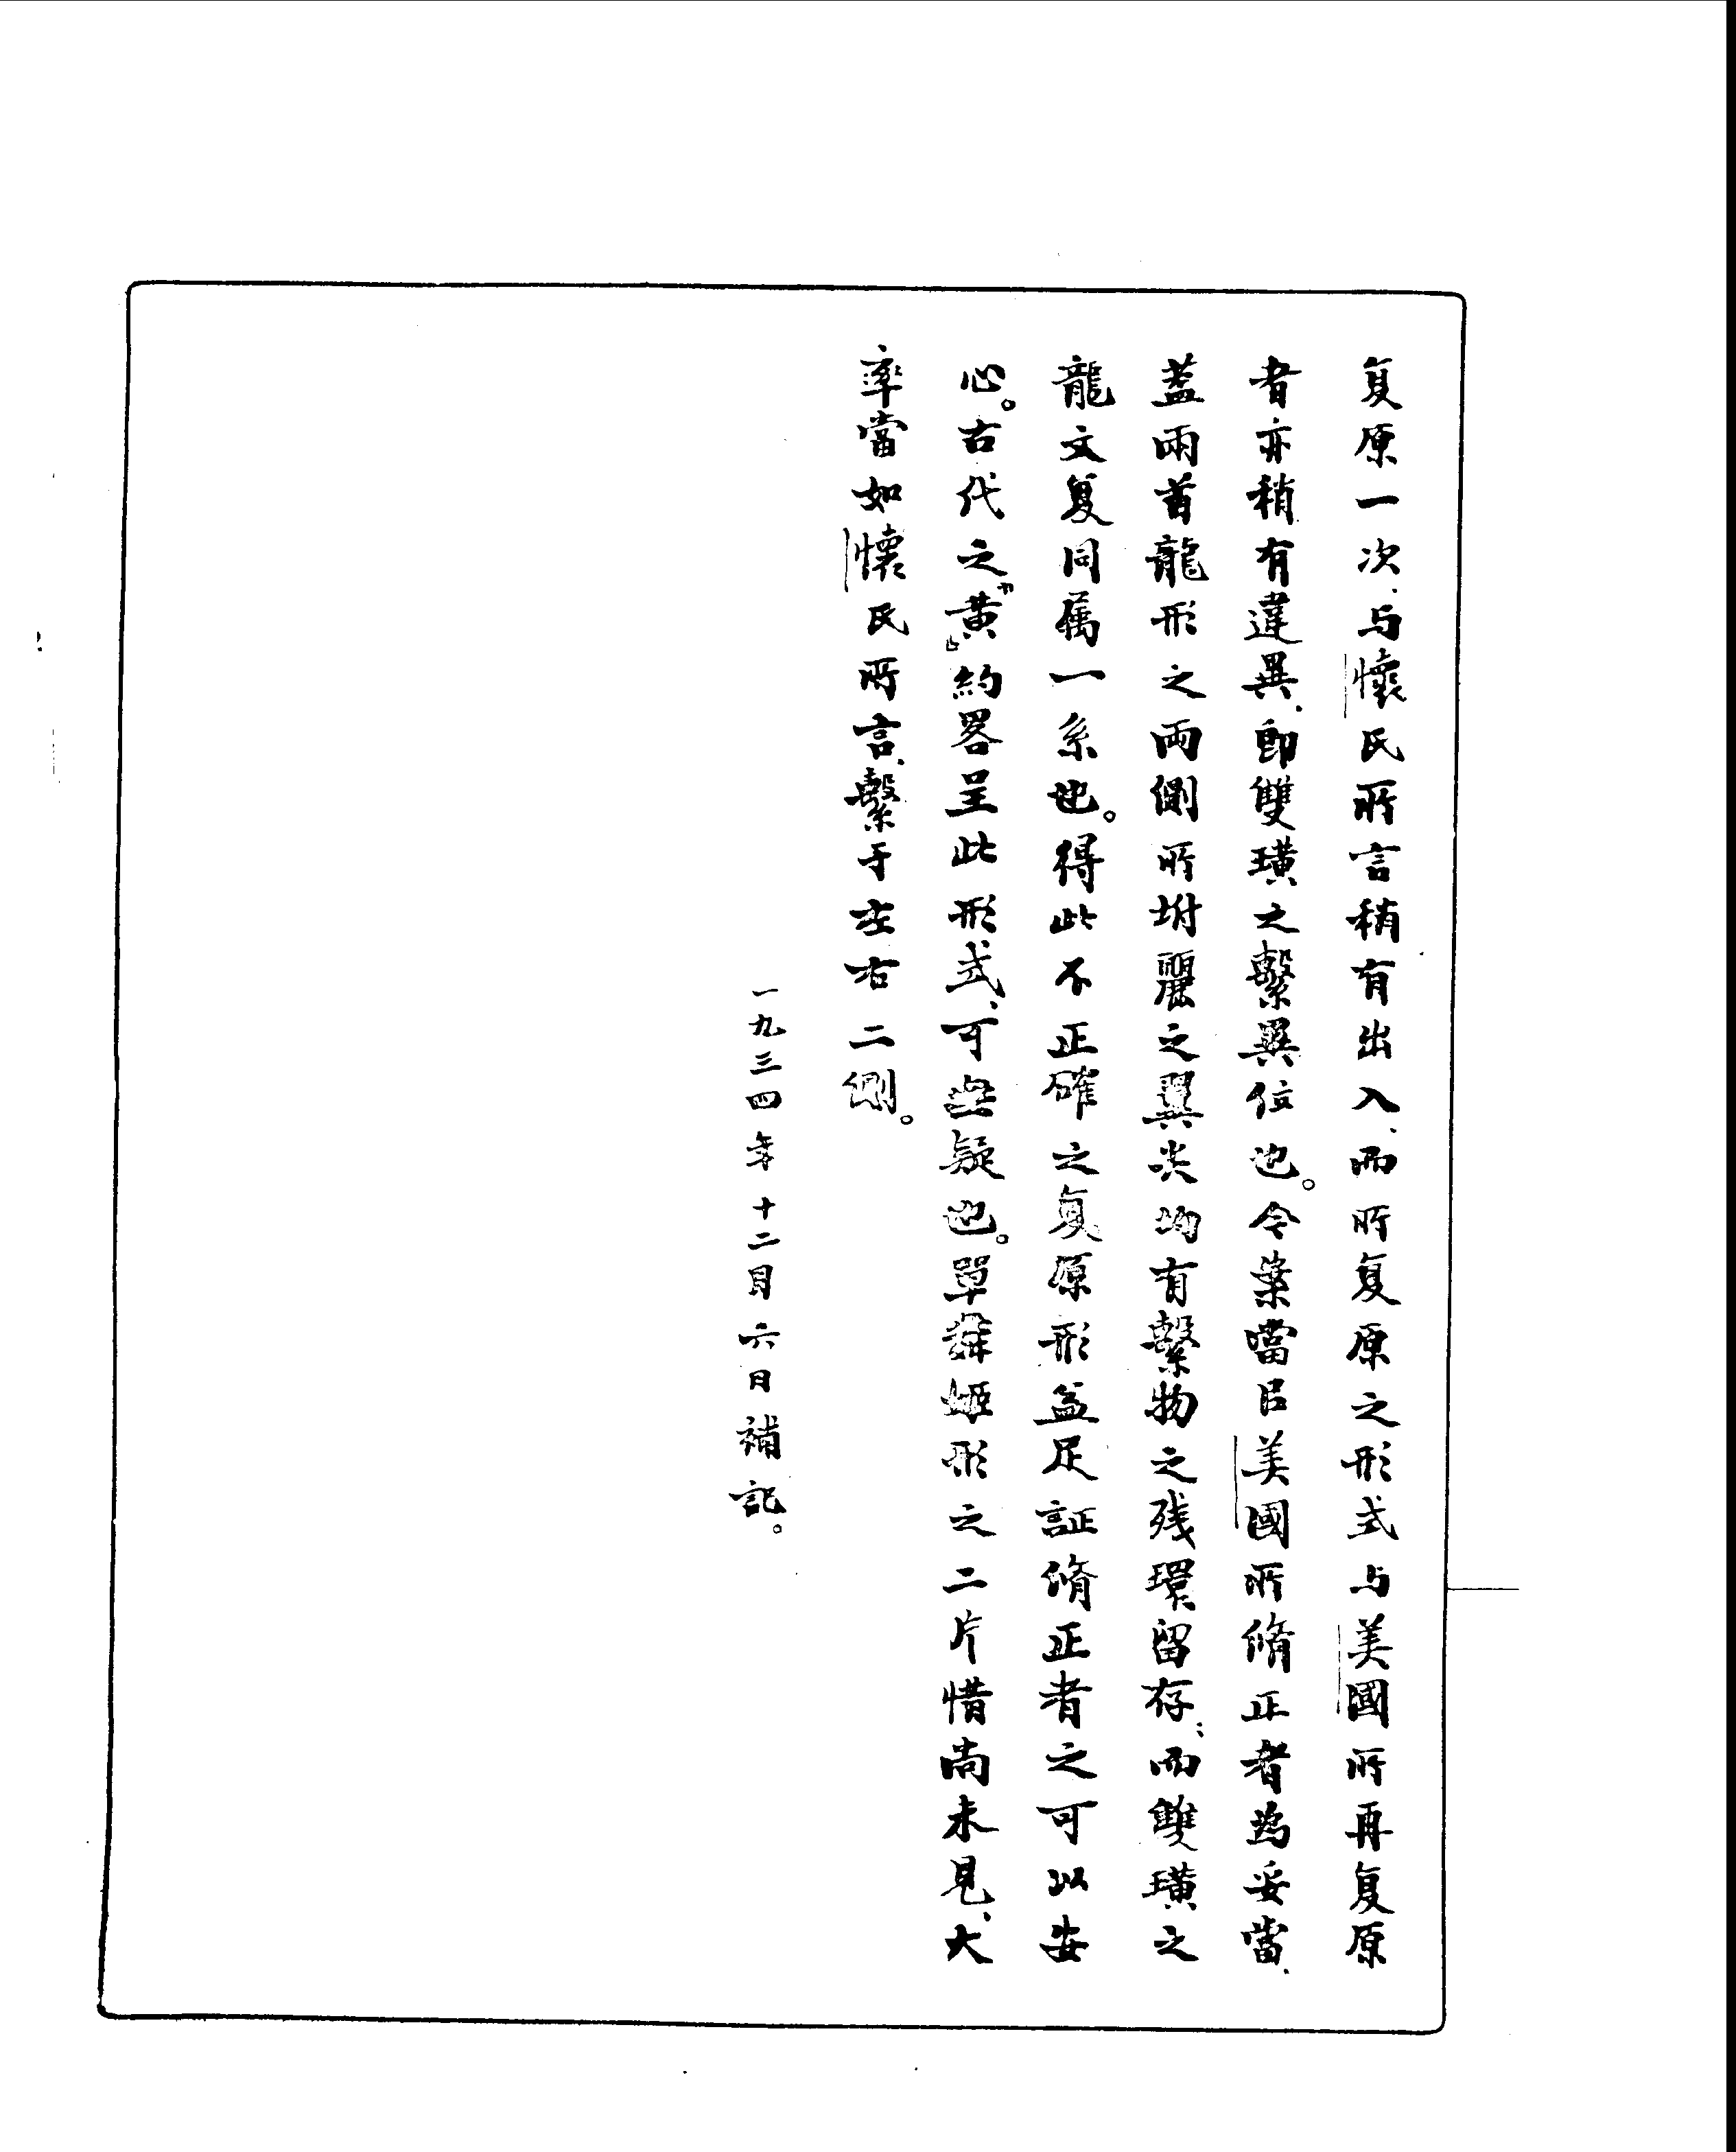 复原一次、与懷氏所言稍有出入、而所复原之形式与美國所再复原
者亦稍有違異、即雙璜之繫異位也。今案當㠯美國所脩正者為妥當、
蓋兩首龍形之兩側所坿麗之翼尖均有繫物之残環留存；而雙璜之
龍文复同属一系也。得此不正確之复原形益足証脩正者之可以安
心。古代之『黃』約畧呈此形式、可無疑也。單舞姬形之二片惜尚未見、大
率當如懷氏所言、繫于左右二側。
一九三四年十二月六日補記。